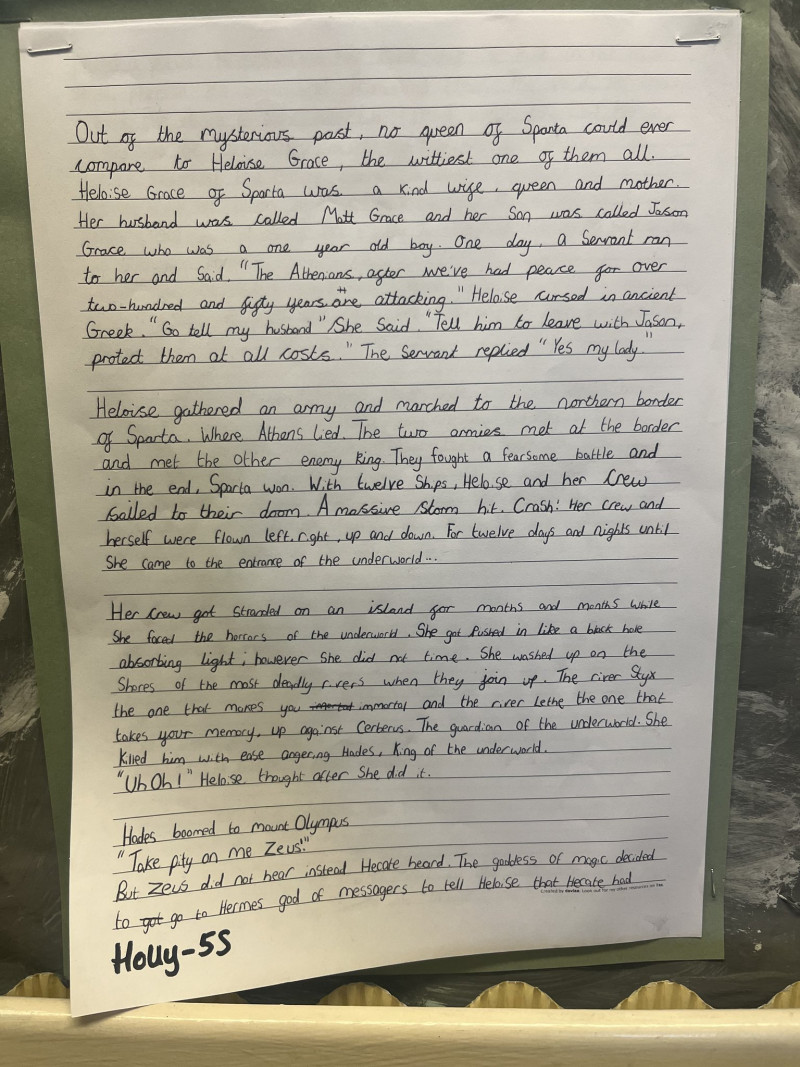 Out of the mysterious past, no queen of Sparta could ever
compare to Heloise Grace, the wittiest one of them all.
Heloise Grace of Sparta was a kind wife, queen and mother.
Her husband was called Matt Grace and her son was called Jason
Grace who was a one year old boy. One day, a servant ran
to her and said. "The Athenians, after we've had peace for over
two-hundred and fifty years. are attacking." Heloise cursed in ancient
Greek. "Go tell my husband" She said. "Tell him to leave with Jason,
protect them at all costs." The servant replied "Yes my lady."
Heloise gathered an army and marched to the northern border
of Sparta. Where Athens lied. The two armies met at the border
and met the other enemy king. They fought a fearsome battle and
in the end, Sparta won. With twelve ships, Heloise and her crew
sailed to their doom. A massive storm hit. Crash! Her crew and
herself were flown left, right, up and down. For twelve days and nights until
She came to the entrance of the underworld...
Her crew got stranded on an island for months and months while
She faced the horrors of the underworld. She got pushed in like a black hole
absorbing light; however she did not time. She washed up on the
Shores of the most deadly rivers when they join up. The river Styx
the one that makes you immortal and the river Lethe the one that
takes your memory, up against Cerberus. The guardian of the underworld. She
killed him with ease angering Hades, King of the underworld.
"Uh Oh!" Heloise thought after she did it.
Hades boomed to mount Olympus
"Take pity on me Zeus!"
But Zeus did not hear instead Hecate heard. The goddess of magic decided
to got go to Hermes god of messagers to tell Heloise that Hecate had
Holly-5S